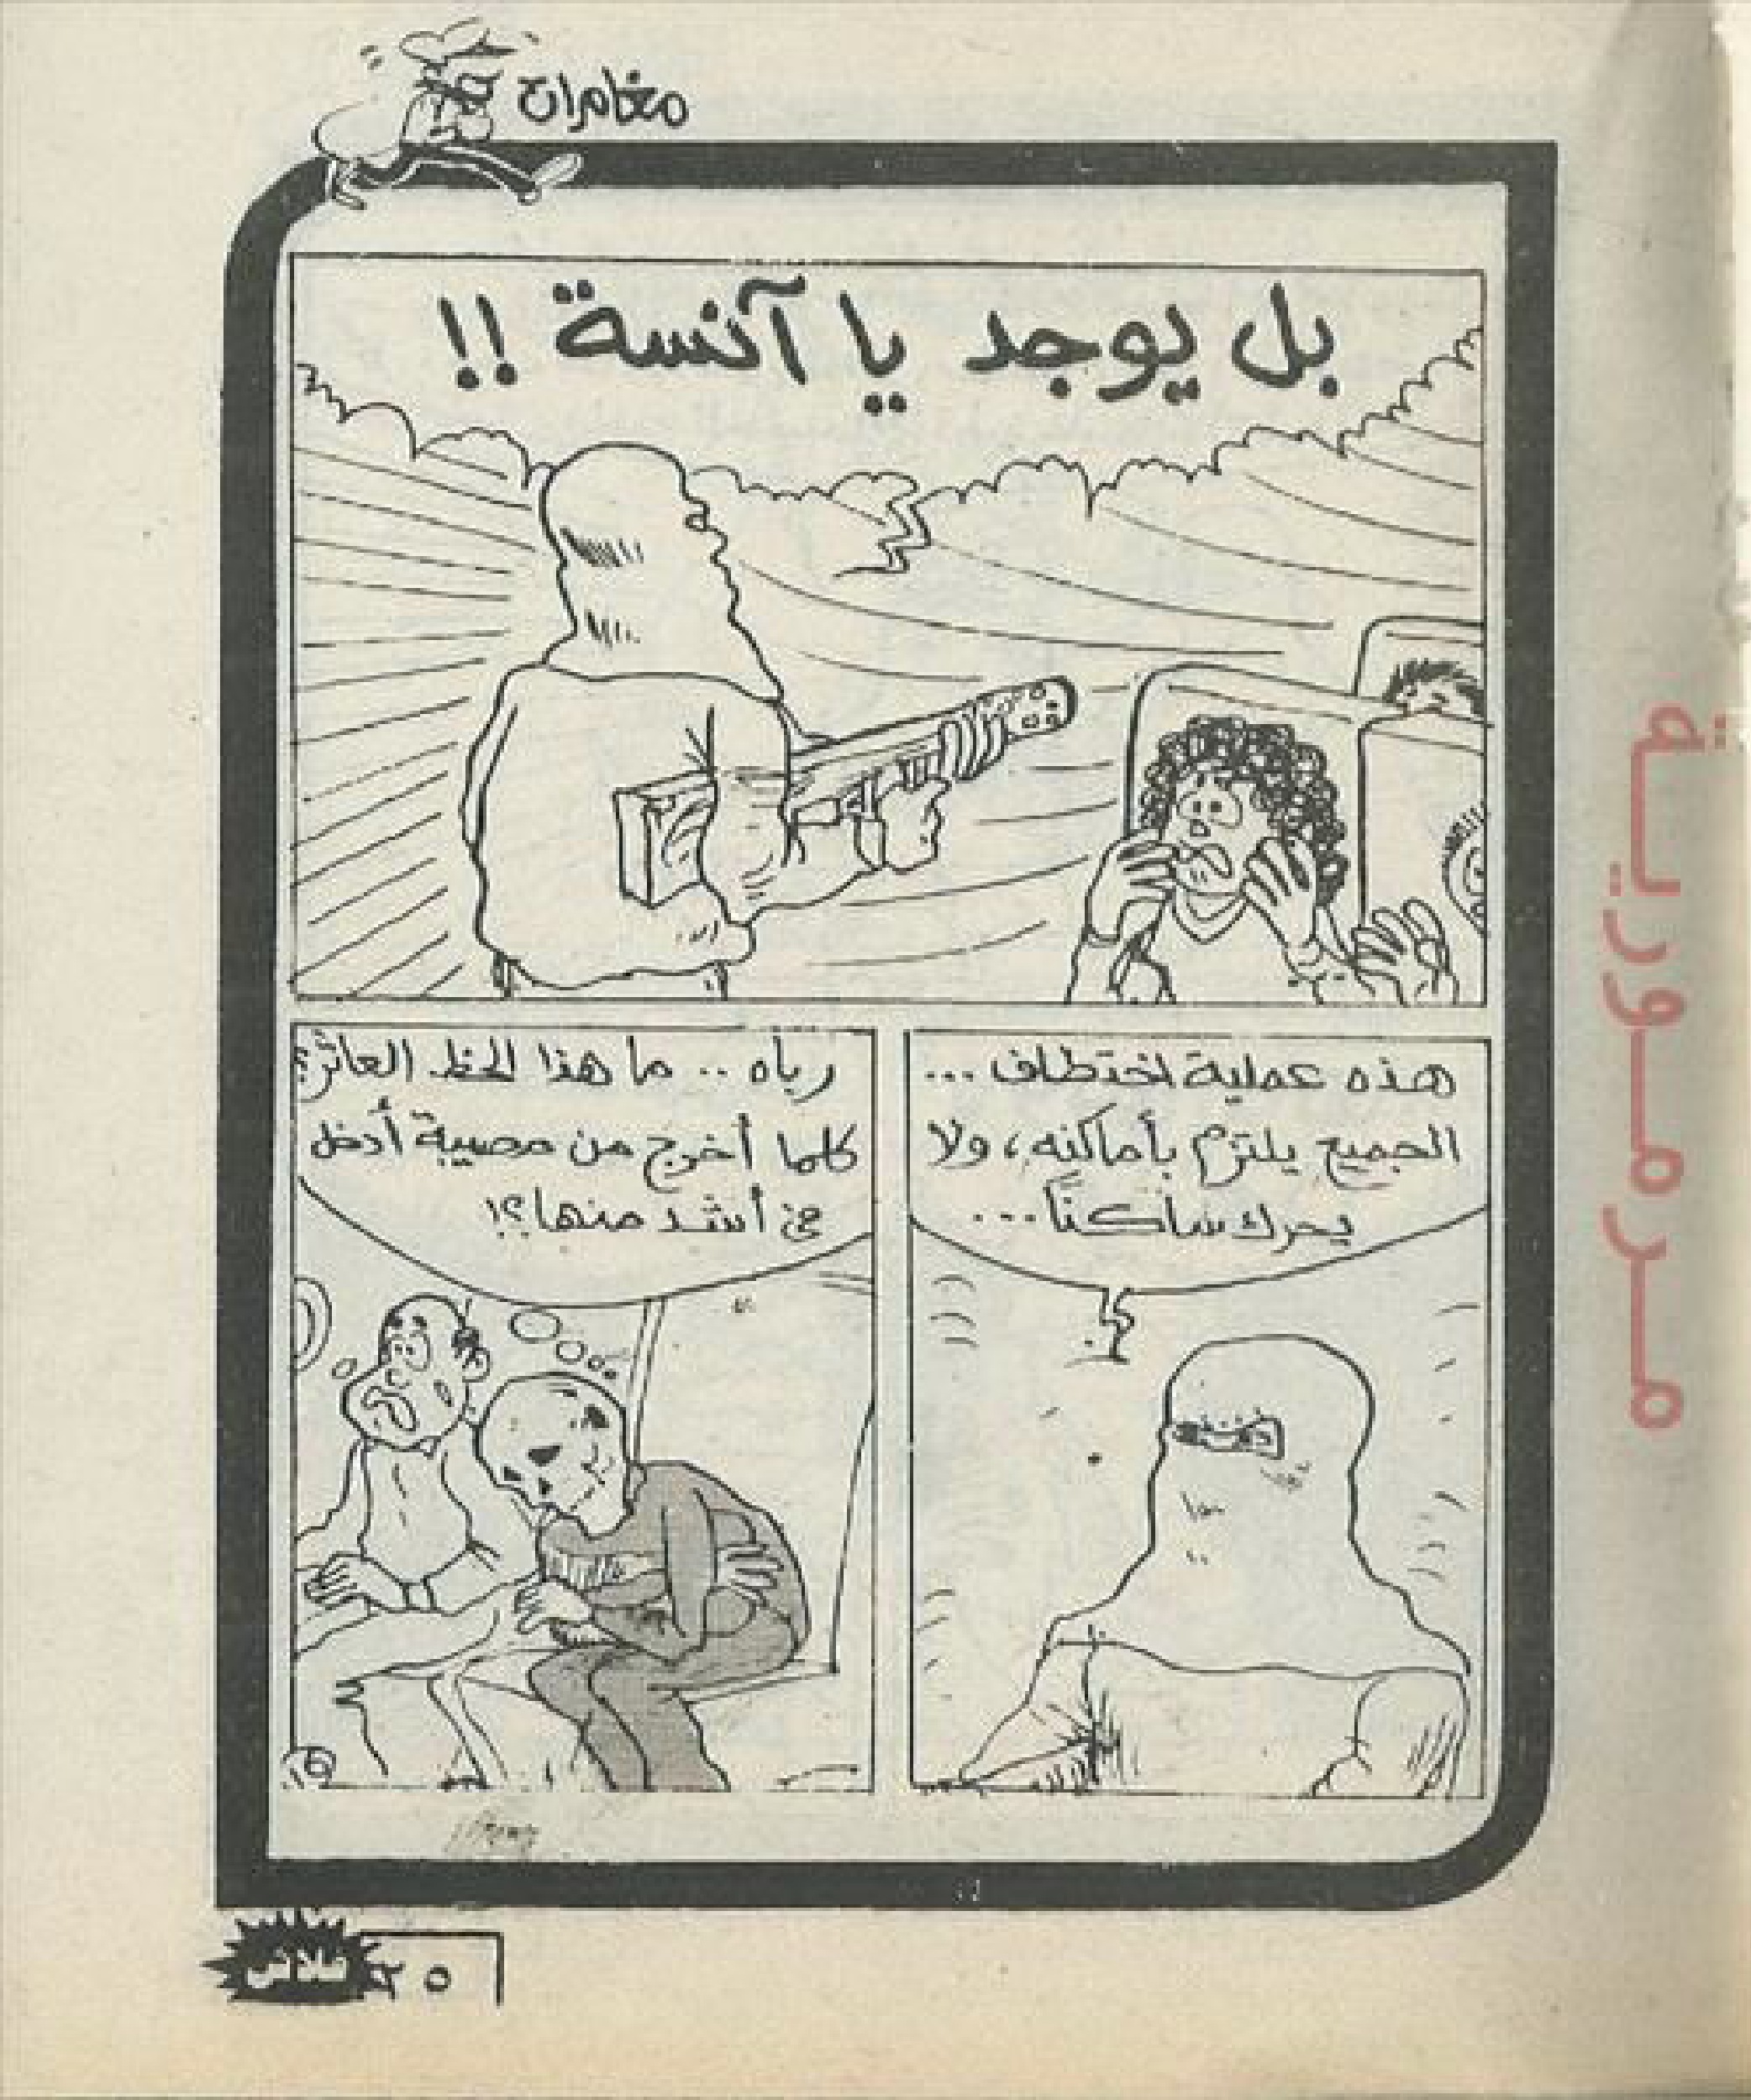 مغامرات
بل يوجد يا آنسة !!
هذه عملية اختطاف ...
الجميع يلتزم بأماكنه ، ولا
يحرك ساكنًا ...
رباه .. ما هذا الحظ العاثر؟
كلما أخرج من مصيبة أدخل
في أشد منها؟!
مرمورية
فلاش
٢٥